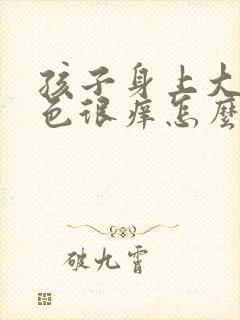 孩子身上大
色很痒怎麽
破九霄